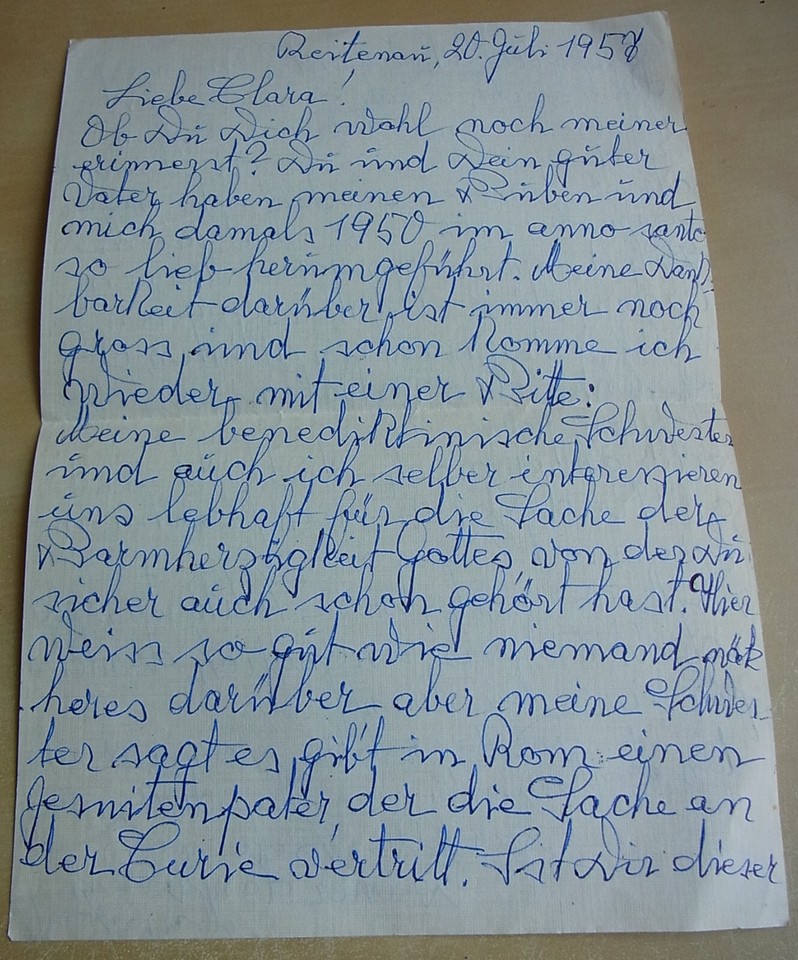 Reitenau, 20. Juli 1958
Liebe Clara!
Ob Du Dich wohl noch meiner
erinnerst? Du und Dein guter
Vater haben meinen Buben und
mich damals 1950 im anno santo
so lieb herumgeführt. Meine Dank-
barkeit darüber ist immer noch
gross und schon komme ich
wieder mit einer Bitte:
Meine benediktinische Schwester
und auch ich selber interessieren
uns lebhaft für die Sache der
Barmherzigkeit Gottes, von der Du
sicher auch schon gehört hast. Hier
weiss so gut wie niemand näh
heres darüber aber meine Schwes-
ter sagt es gibt in Rom einen
Jesuitenpater, der die Sache an
der Curie vertritt. Ist Dir dieser